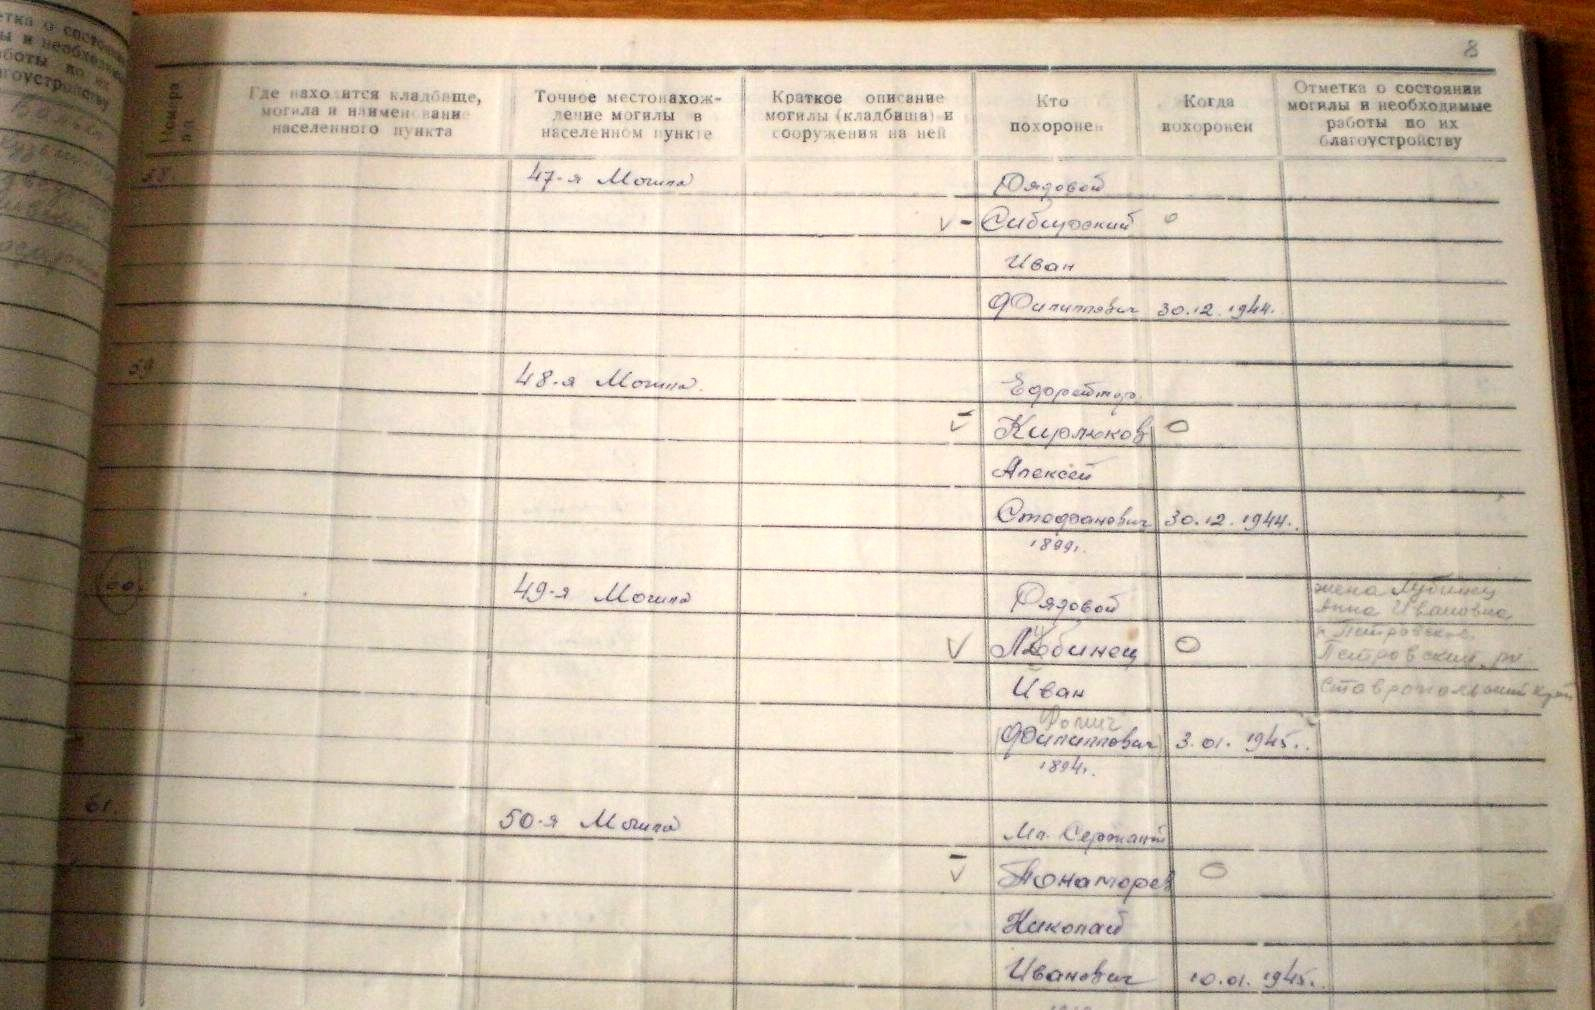 8
Номера
Где находится кладбище,
могила и наименование
населенного пункта
Точное местонахож-
дение могилы в
населенном пункте
Краткое описание
могилы (кладбища) и
сооружения на ней
Кто
похоронен
Когда
похоронен
Отметка о состоянии
могилы и необходимые
работы по их
благоустройству
58. 47-я Могила Рядовой
Сибирский
Иван
Филиппович 30.12.1944.
59 48-я Могила. Ефрейтор
Кирлюков
Алексей
Стефанович 30.12.1944.
1899г.
60. 49-я Могила Рядовой жена Лубинец
Анна Ивановна
Лубинец Петровский
Иван Ставропольский край
Фомич
Филиппович 3.01.1945.
1894г.
61. 50-я Могила Мл. Сержант
Понаморев
Николай
Иванович 10.01.1945.